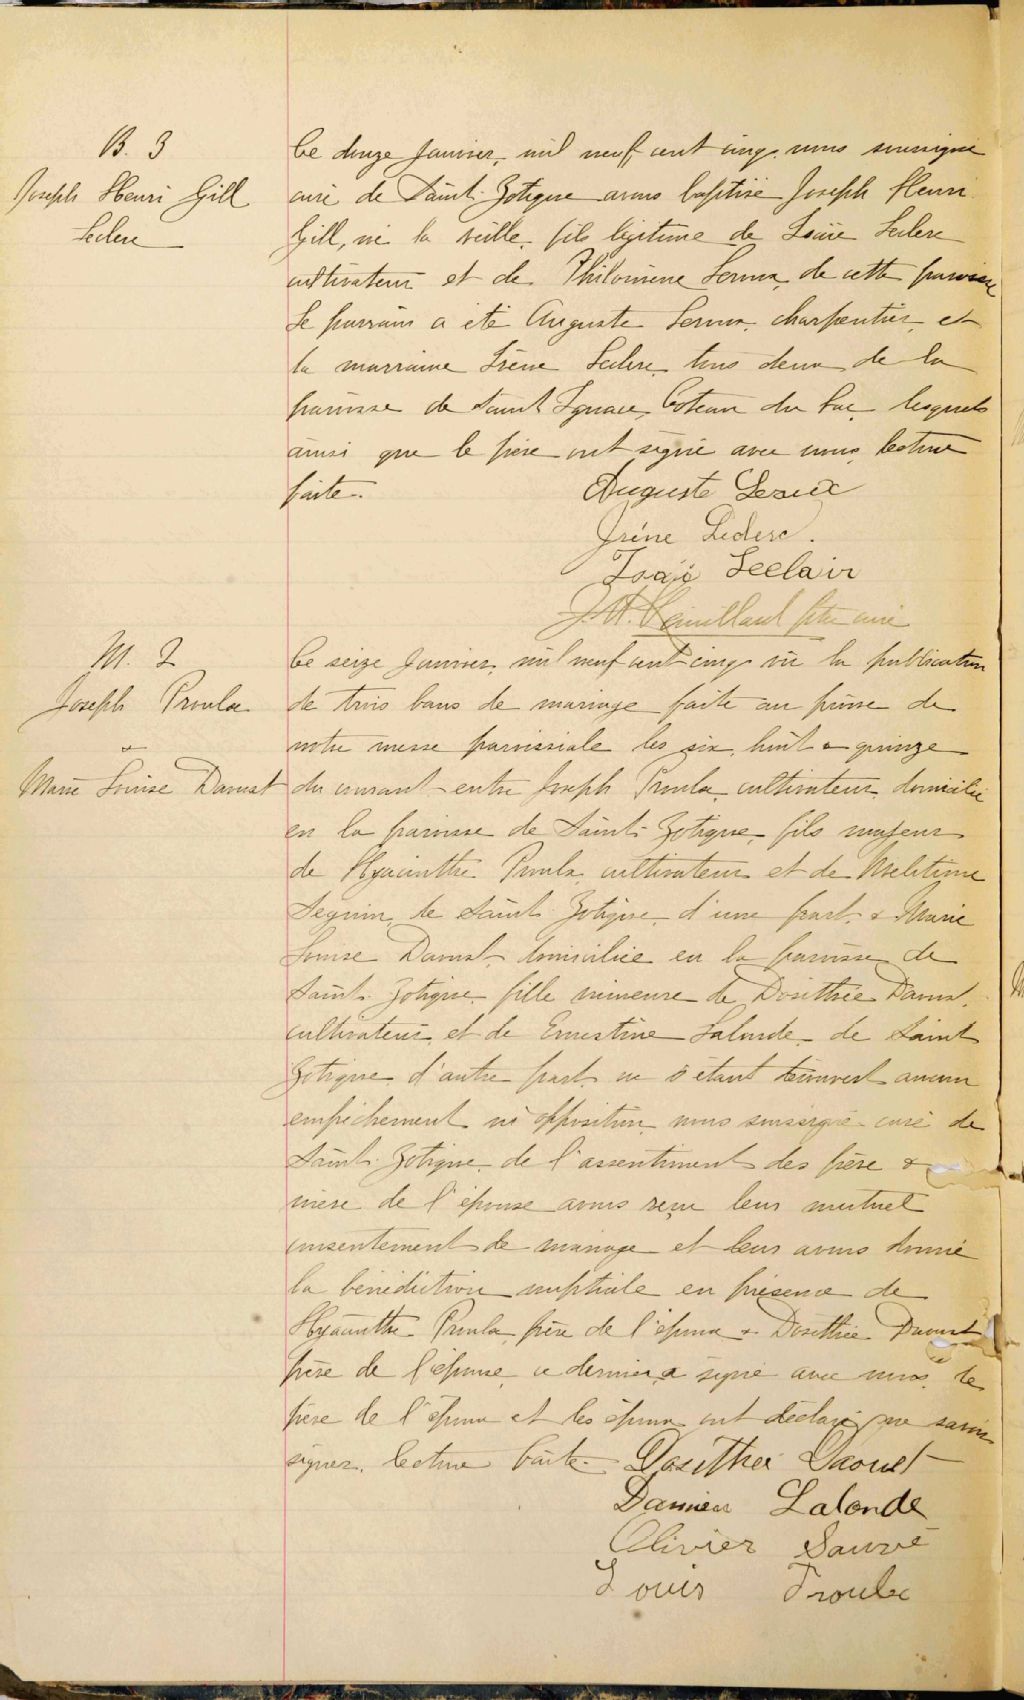 B. 3
Joseph Henri Gill
Leclerc
Ce douze Janvier, mil neuf cent cinq, nous soussigné
curé de Saint-Zotique avons baptisé Joseph Henri
Gill, né la veille, fils légitime de Isaïe Leclerc
cultivateur et de Philomène Leroux, de cette paroisse
Le parrain a été Auguste Leroux, charpentier, et
la marraine Irène Leclerc, tous deux de la
paroisse de Saint Ignace, Coteau du Lac, lesquels
ainsi que le père ont signé avec nous, lecture
faite.
Auguste Leroux
Irène Leclerc.
Isaïe Leclair
ptre curé
M. 2
Joseph Proulx
&
Marie Louise Daoust
Ce seize Janvier, mil neuf cent cinq vu la publication
de trois bans de mariage faite au prône de
notre messe paroissiale les six, huit & quinze
du courant entre Joseph Proulx, cultivateur, domicilié
en la paroisse de Saint-Zotique, fils majeur
de Hyacinthe Proulx, cultivateur et de Melitime
Seguin, de Saint-Zotique, d'une part, & Marie
Louise Daoust, domiciliée en la paroisse de
Saint-Zotique, fille mineure de Dosithée Daoust,
cultivateur, et de Ernestine Lalonde, de Saint
Zotique d'autre part, ne s'étant découvert aucun
empêchement ni opposition, nous soussigné curé de
Saint-Zotique, de l'assentiment des père &
mère de l'épouse avons reçu leur mutuel
consentement de mariage et leur avons donné
la bénédiction nuptiale en présence de
Hyacinthe Proulx, père de l'époux & Dosithée Daoust
père de l'épouse, ce dernier a signé avec nous, le
père de l'époux et les époux ont déclaré ne savoir
signer, lecture faite. Dosithée Daoust
Damien Lalonde
Olivier Sauvé
Louis Proulx